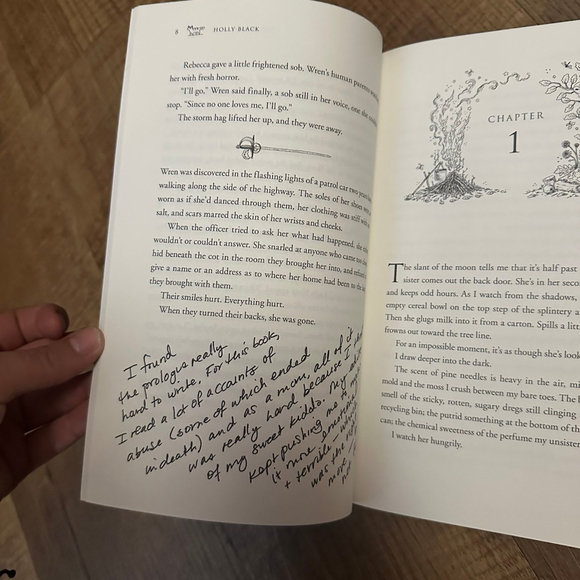 8
HOLLY BLACK
Rebecca gave a little frightened sob. Wren's human parents
her with fresh horror.
"I'll go," Wren said finally, a sob still in her voice, one she
stop. "Since no one loves me, I'll go."
The storm hag lifted her up, and they were away.
Wren was discovered in the flashing lights of a patrol car two years
walking along the side of the highway. The soles of her shoes were
worn as if she'd danced through them, her clothing was stiff with
salt, and scars marred the skin of her wrists and cheeks.
When the officer tried to ask her what had happened, she
wouldn't or couldn't answer. She snarled at anyone who came
hid beneath the cot in the room they brought her into, and refused
give a name or an address as to where her home had been to the
they brought with them.
Their smiles hurt. Everything hurt.
When they turned their backs, she was gone.
I found
the prologue really
hard to write. For this book,
I read a lot of accounts of
abuse (some of which ended
in death) and as a mom, all of it
was really hard because I
of my sweet kiddo. My
kept pushing me to
it more
+ terrible
was the
more
CHAPTER
1
The slant of the moon tells me that it's half past
sister comes out the back door. She's in her
and keeps odd hours. As I watch from the shadows,
empty cereal bowl on the top step of the splintery
Then she glugs milk into it from a carton. Spills a
frowns out toward the tree line.
For an impossible moment, it's as though she's
I draw deeper into the dark.
The scent of pine needles is heavy in the air,
mold and the moss I crush between my bare toes. The
smell of the sticky, rotten, sugary dregs still clinging
recycling bin; the putrid something at the bottom of the
can; the chemical sweetness of the perfume my
I watch her hungrily.